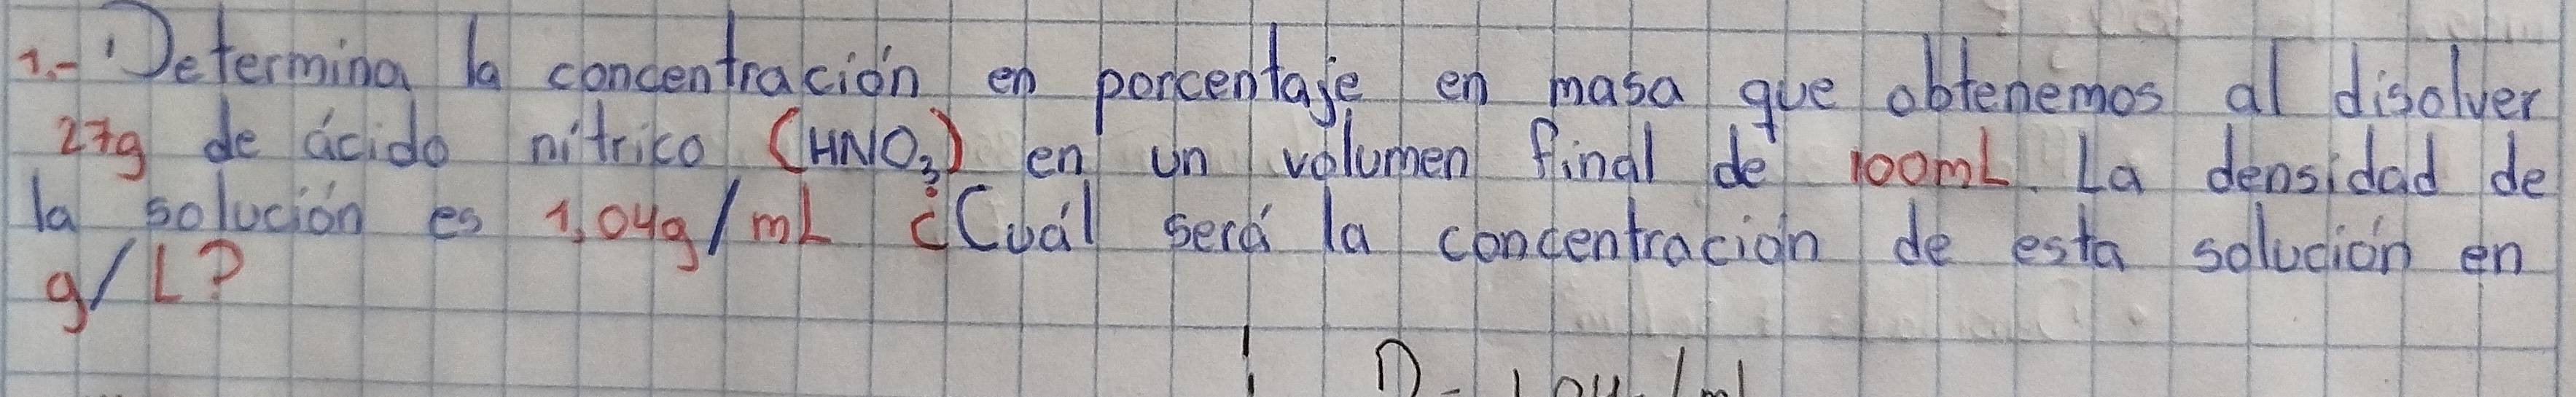 1.- Determina la concentración en porcentaje en masa que obtenemos al disolver
27g de ácido nítrico (HNO₃) en un volumen final de 100mL. La densidad de
la solución es 1,04g/mL ¿Cuál será la concentración de esta solución en
g/L?
D = 1,04g/ml